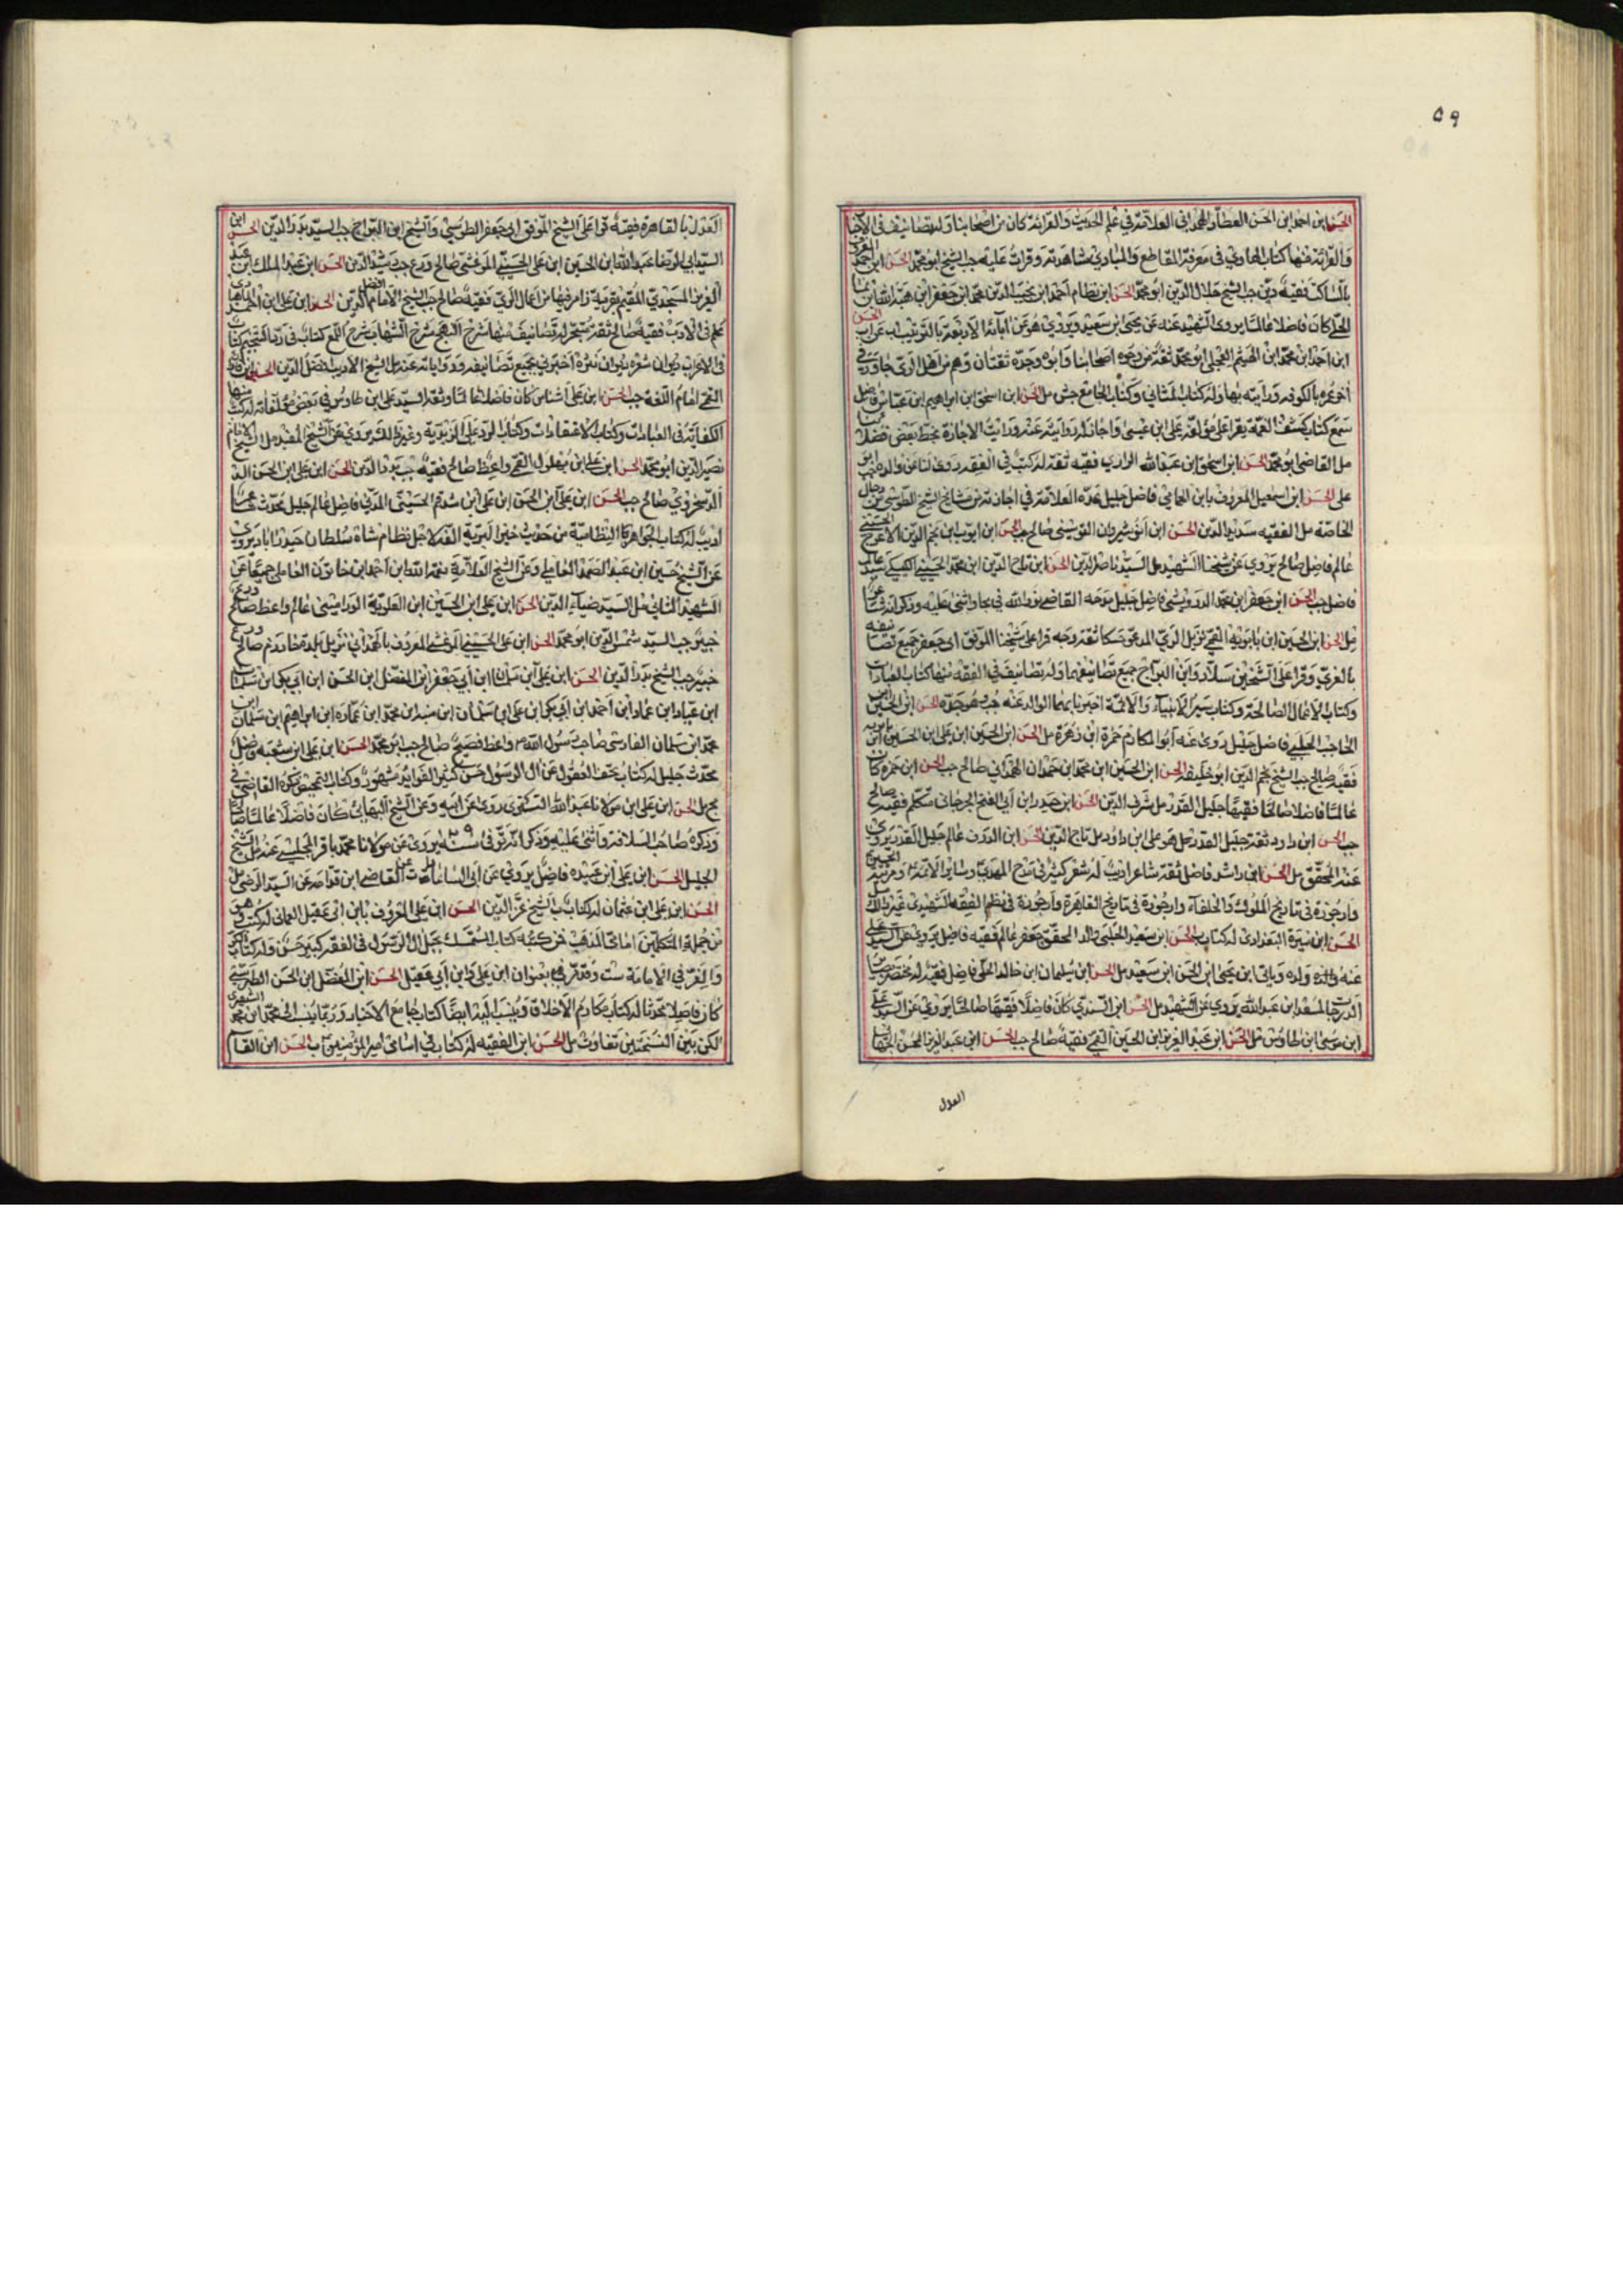 ٥٩
الحسن ابن احمد ابن الحسن العطار الهمداني العلامة في علم الحديث والقرائة كان من اصحابنا وله تصانيف في الاخبار
والقرائة منها كتاب الهادي في معرفة المقاطع والمبادي شاهدته وقرات عليه جب الشيخ ابو محمد الحسن ابن احمد
فقيه دين جب الشيخ جلال الدين ابو محمد الحسن ابن نظام الدين احمد ابن نجيب الدين محمد ابن جعفر ابن هبة الله ابن نما
الحلي كان فاضلا عالما يروي الشهيد عنه عن يحيى ابن سعيد ويروي هو عن ابائه الاربعة بالترتيب
ابن احمد ابن محمد ابن الهيثم العجلي ابو محمد ثقة من وجوه اصحابنا وابوه وجده ثقتان وهم من اهل الري جاور في
اخر عمره بالكوفة ورايته بها وله كتاب المثاني وكتاب الجامع جش مل الحسن ابن اسحق ابن ابراهيم ابن عباس فاضل
سمع كتاب كشف الغمة يقرا على مؤلفه علي ابن عيسى واجاز له روايته عنه ورايت الاجازة بخط بعض فضلائنا
مل القاضي ابو محمد الحسن ابن اسحق ابن عبد الله الرازي فقيه ثقة له كتب في الفقه روى لنا عنه والده جب
الحسن ابن اسمعيل المعروف بابن الحمامي فاضل جليل عده العلامة في اجازته من مشائخ الشيخ الطوسي من رجال
الخاصة مل الفقيه سديد الدين الحسن ابن انوشيروان القوسيني صالح جب الحسن ابن ايوب ابن نجم الدين الاعرج الحسيني
عالم فاضل صالح يروي عن شيخنا الشهيد مل السيد ناصر الدين الحسن ابن تاج الدين ابن محمد الحسيني الكيسكي سيد عالم
فاضل جب الحسن ابن جعفر ابن محمد الدوريستي فاضل جليل مدحه القاضي نور الله في مجا واثنى عليه
مل الحسن ابن الحسين ابن بابويه القمي نزيل الري المدعو حسكا ثقة وجه قرا على شيخنا الموفق ابي جعفر جميع تصانيفه
بالغري وقرا على الشيخين سلار وابن البراج جميع تصانيفهما وله تصانيف في الفقه منها كتاب العبادات
وكتاب الاعمال الصالحة وكتاب سير الانبياء والائمة اخبرنا بها الوالد عنه جب وهو جده الحسن ابن الحسين
الحاجب الحلبي فاضل جليل روى عنه ابو المكارم حمزة ابن زهرة مل الحسن ابن الحسين ابن علي ابن الحسين ابن بابويه
فقيه صالح جب الشيخ نجم الدين ابو خليفة الحسن ابن الحسين ابن محمد ابن حمدان الهمداني صالح جب الحسن ابن حمزة كان
عالما فاضلا صالحا فقيها جليل القدر مل شرف الدين الحسن ابن حيدر ابن ابي الفتح الجرجاني متكلم فقيه صالح
جب الحسن ابن داود ثقة جليل القدر مل هو علي ابن داود مل تاج الدين الحسن ابن الدربي عالم جليل القدر يروي
عنه المحقق مل الحسن ابن راشد فاضل ثقة شاعر اديب له شعر كثير في مدح المهدي وسائر الائمة ومرثية الحسين
وارجوزة في تاريخ الملوك والخلفاء وارجوزة في تاريخ القاهرة وارجوزة في نظم الفية الشهيد وغير ذلك مل
الحسن ابن سبرة البغدادي له كتاب ب الحسن ابن سعيد الحلي والد المحقق جعفر عالم فقيه فاضل يروي عنه
عنه ولده وياتي ابن يحيى ابن الحسن ابن سعيد مل الحسن ابن سليمان ابن خالد الحلي فاضل فقيه له مختصر
سعد ابن عبد الله يروي عن الشهيد مل الحسن ابن السندي كان فاضلا فقيها صالحا يروي عن السيد علي
ابن موسى ابن طاوس مل الحسن ابن عبد العزيز ابن الحسين القمي فقيه صالح جب الحسن ابن عبد العزيز المحسن الجبهاني
العدل
العدل بالقاهرة فقيه قرا على الشيخ الموفق ابي جعفر الطوسي والشيخ ابن البراج جب السيد بدر الدين الحسن ابن
السيد ابي الرضا عبد الله ابن الحسين ابن علي الحسيني المرعشي صالح ورع جب رشيد الدين الحسن ابن عبد الملك ابن عبد
العزيز المسجدي المقيم بقرية رامرفيها من اعمال الري فقيه صالح جب الشيخ الامام افضل الدين الحسن ابن علي ابن احمد
علم في الادب فقيه صالح ثقة متبحر له تصانيف منها شرح النهج شرح الشهاب شرح اللمع كتاب في رد التنجيم كتاب
في الاعراب ديوان شعره ديوان نثره اخبرني بجميع تصانيفه ورواياته عنه مل الشيخ الاديب افضل الدين الحسن ابن فادار
القمي امام اللغة جب الحسن ابن علي اشناس كان فاضلا عالما وثقه السيد علي ابن طاوس في بعض مؤلفاته له كتب منها
الكفاية في العبادات وكتاب الاعتقادات وكتاب الرد على الزيدية وغير ذلك يروي عن الشيخ المفيد مل الشيخ الامام
نصير الدين ابو محمد الحسن ابن علي ابن زهلول القمي واعظ صالح فقيه جب بدر الدين الحسن ابن علي ابن الحسن
الدسجردي صالح جب الحسن ابن علي ابن الحسن ابن علي ابن شدقم الحسيني المدني فاضل عالم جليل محدث شاعر
اديب له كتاب الجواهر النظامية من حديث خير البرية الفه لاجل نظام شاه سلطان حيدراباد يروي
عن الشيخ حسين ابن عبد الصمد العاملي وعن الشيخ العلامة نعمة الله ابن احمد ابن خاتون العاملي جميعا عن
الشهيد الثاني مل السيد ضياء الدين الحسن ابن علي ابن الحسين ابن العلوية الوراميني عالم واعظ صالح
خير جب السيد شمس الدين ابو محمد الحسن ابن علي الحسيني المرعشي المعروف بالهمداني نزيل بلدة خوارزم صالح ورع
خير جب الشيخ بدر الدين الحسن ابن علي ابن سلمان ابن ابي جعفر ابن المفضل ابن الحسن ابن ابي بكر ابن سلمان
ابن عباد ابن عمار ابن احمد ابن ابي بكر ابن علي ابن سلمان ابن منبه ابن محمد ابن عمارة ابن ابراهيم ابن سلمان ابن
محمد ابن سلمان الفارسي صاحب رسول الله واعظ فصيح صالح جب ابو محمد الحسن ابن علي ابن شعبة فاضل
محدث جليل له كتاب تحف العقول عن ال الرسول حسن كثير الفوائد مشهور وكتاب التمحيص ذكره القاضي في
مج مل الحسن ابن علي ابن مولانا عبد الله التستري روى عن ابيه وعن الشيخ البهائي كان فاضلا عالما صالحا
وذكره صاحب السلافة واثنى عليه وذكر انه توفي في سنة يروي عن مولانا محمد باقر المجلسي عنه مل الشيخ
الجليل الحسن ابن علي ابن عبيدة فاضل يروي عن ابي السعادات عن القاضي ابن قدامة عن السيد الرضي مل
الحسن ابن علي ابن عثمان له كتاب ب الشيخ عز الدين الحسن ابن علي المعروف بابن ابي عقيل العماني له كتب وهو
من جملة المتكلمين امامي المذهب فمن كتبه كتاب المتمسك بحبل ال الرسول في الفقه كبير حسن وله كتاب الكر
والفر في الامامة ست وقد تقدم بعنوان ابن علي وابن ابي عقيل الحسن ابن المفضل ابن الحسن الطبرسي
كان فاضلا محدثا له كتاب مكارم الاخلاق وينسب اليه ايضا كتاب جامع الاخبار وربما ينسب الى محمد ابن محمد الشعيري
لكن بين النسختين تفاوت مل الحسن ابن الفقيه له كتاب في اسامي امير المؤمنين ب الحسن ابن القاسم